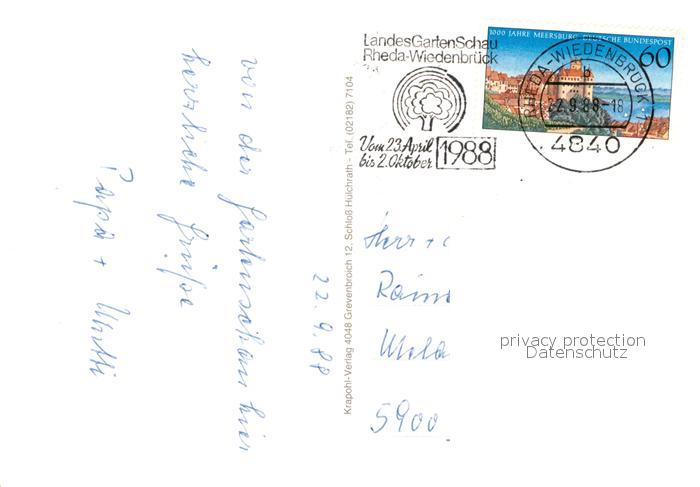 LandesGartenSchau
Rheda-Wiedenbrück
Vom 23. April
bis 2. Oktober
1988
1000 JAHRE MEERSBURG DEUTSCHE BUNDESPOST
60
RHEDA-WIEDENBRÜCK 1
b
22.9.88-18
4840
von der Gartenschau hier
herzliche Grüße
Papa + Mutti
22.9.88
Krapohl-Verlag 4048 Grevenbroich 12, Schloß Hülchrath - Tel. (02182) 7104
Herr +
5900
privacy protection
Datenschutz